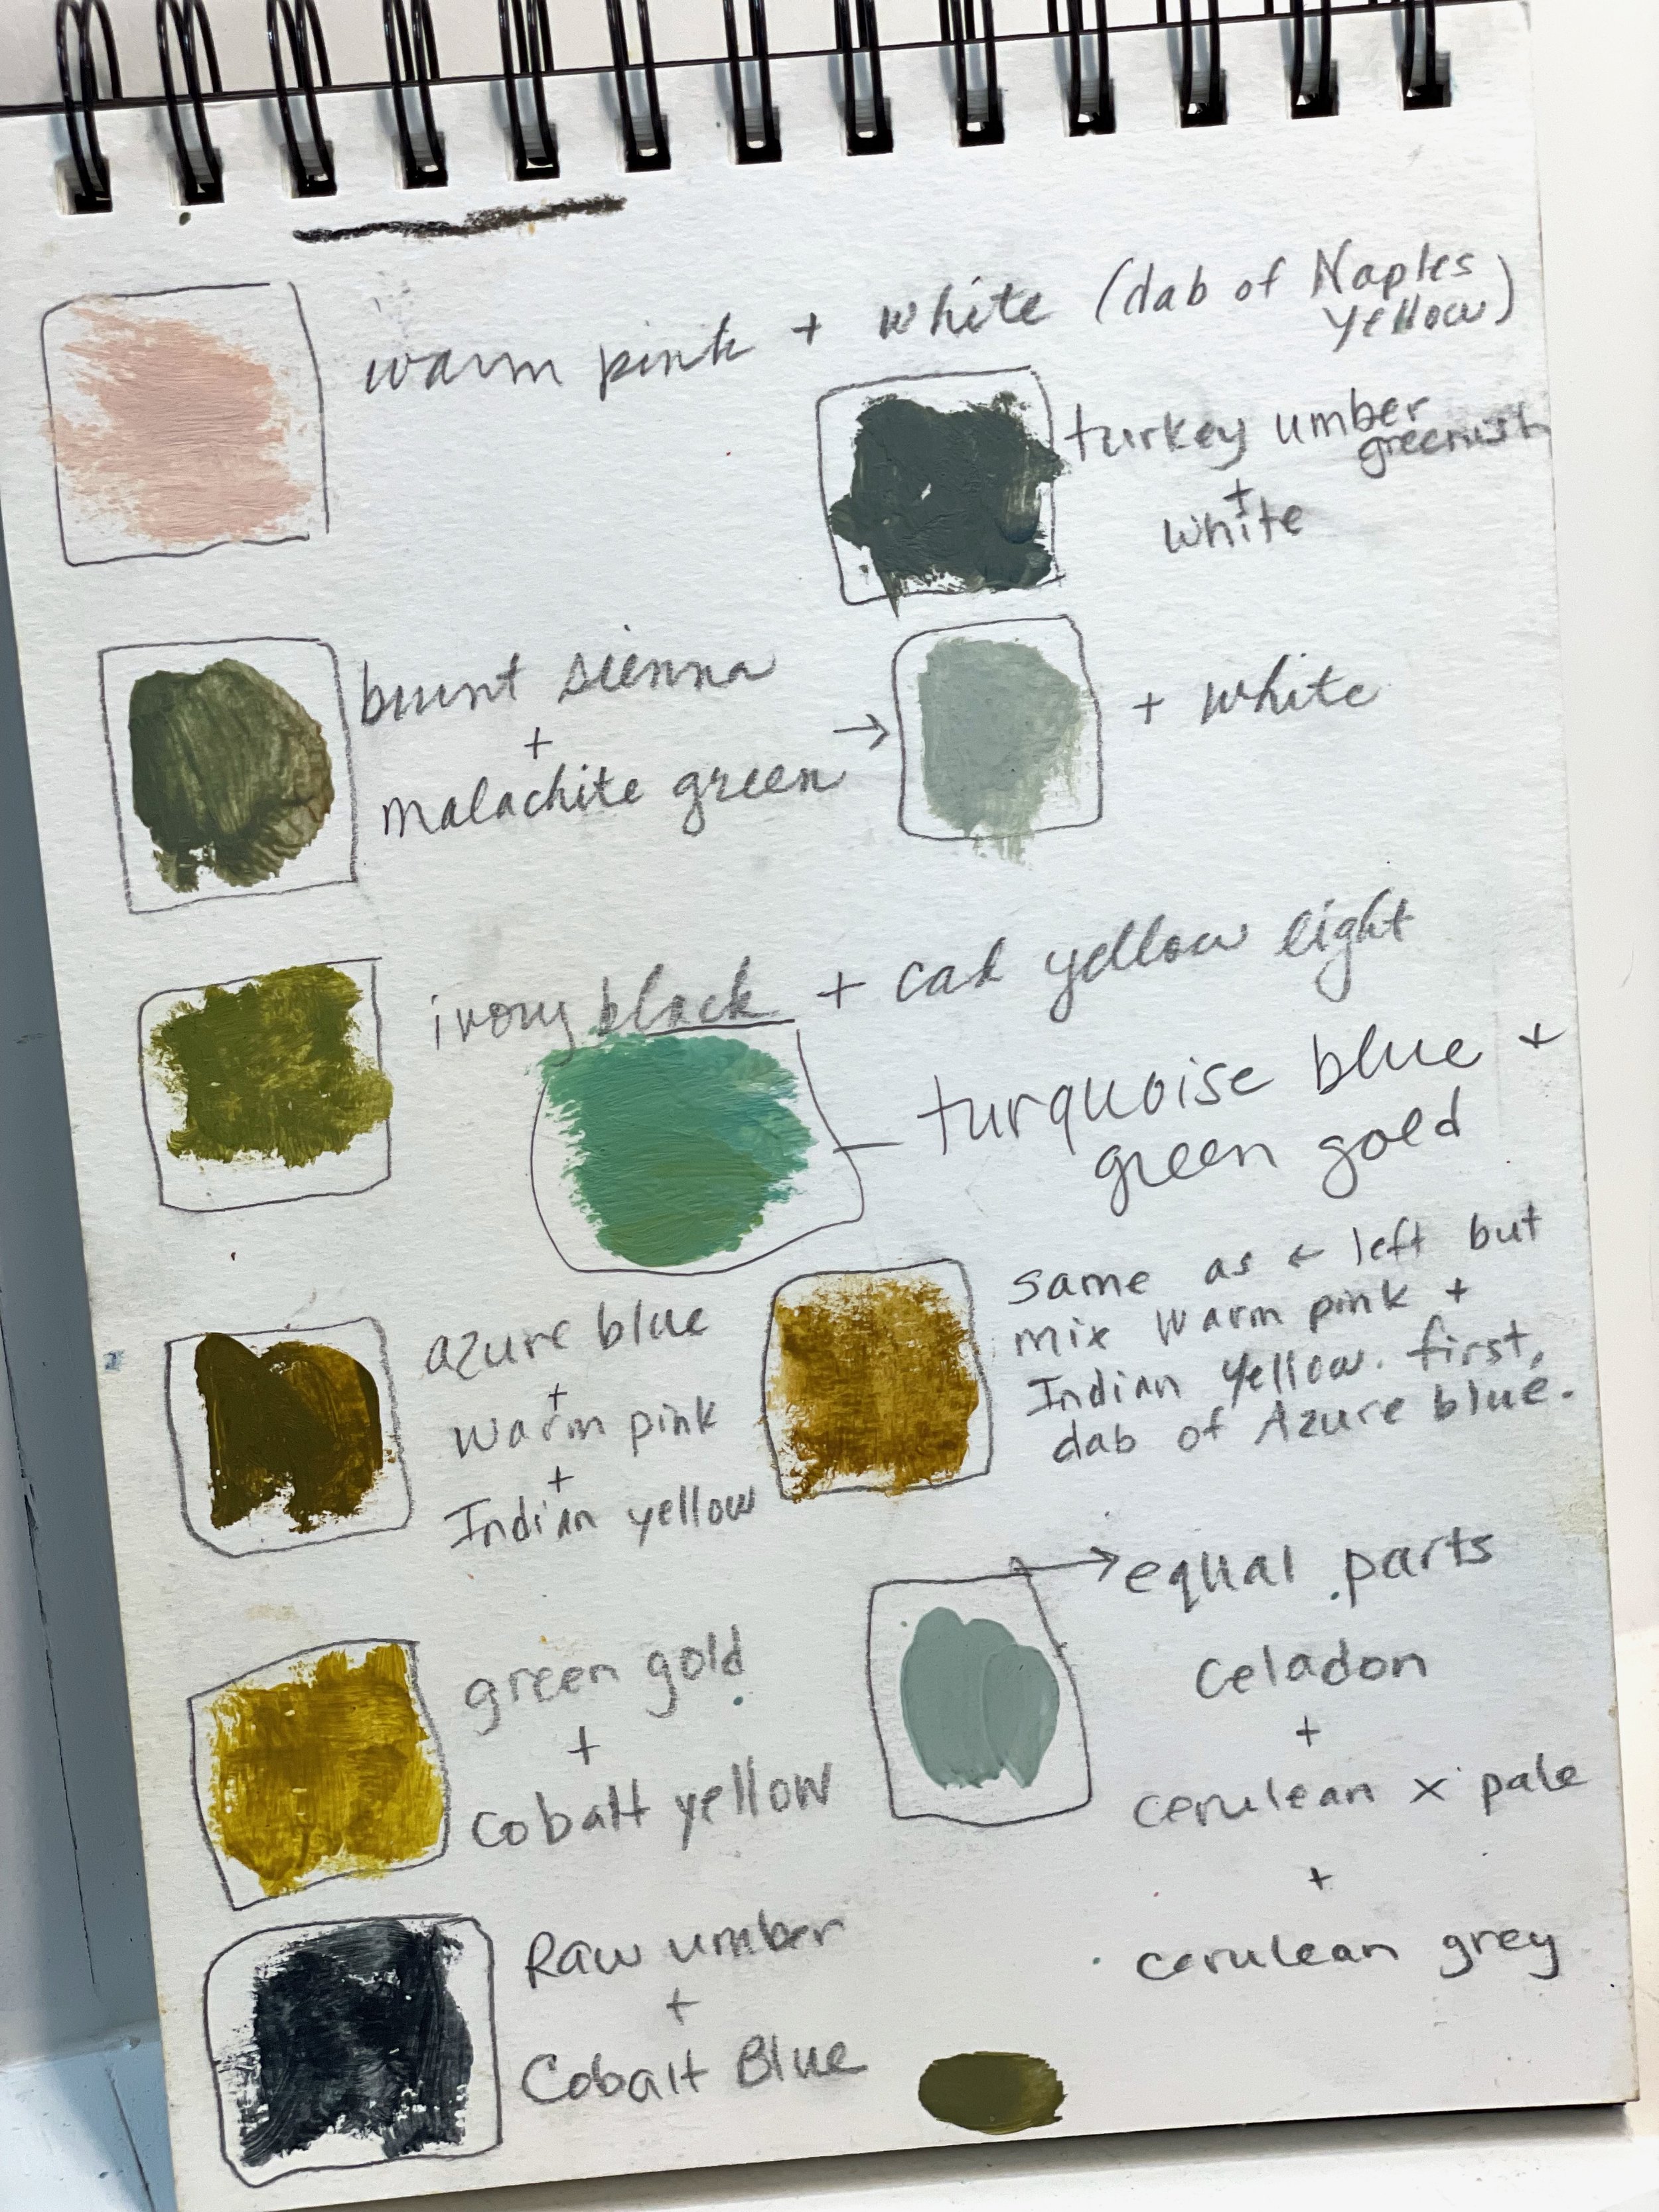 warm pink + white (dab of Naples
Yellow)
turkey umber
greenish
+
white
burnt sienna
+
malachite green →
+ white
ivory black + cad yellow light
turquoise blue +
green gold
azure blue
+
warm pink
+
Indian yellow
same as ← left but
mix warm pink +
Indian Yellow. first,
dab of Azure blue.
green gold
+
cobalt yellow
→ equal parts
Celadon
+
cerulean x pale
+
cerulean grey
Raw umber
+
Cobalt Blue